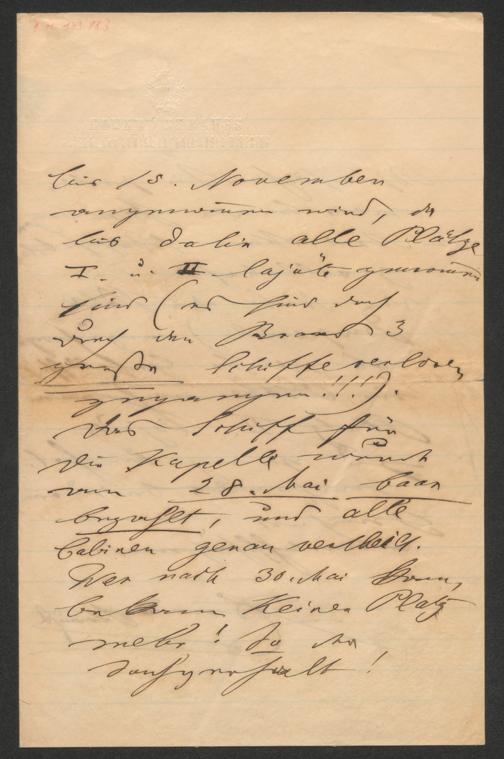 bis 15. November
angenommen wird, da
bis dahin alle Plätze
I. u. II Cajüte genommen
sind (es sind doch
durch den Brand 3
große Schiffe verloren
gegangen!!!).
Das Schiff für
die Kapelle wurde
am 28. Mai baar
bezahlt, und alle
Cabinen genau vertheilt.
Wer nach 30. Mai kam,
bekam Keinen Platz
mehr! So der
Sachverhalt!